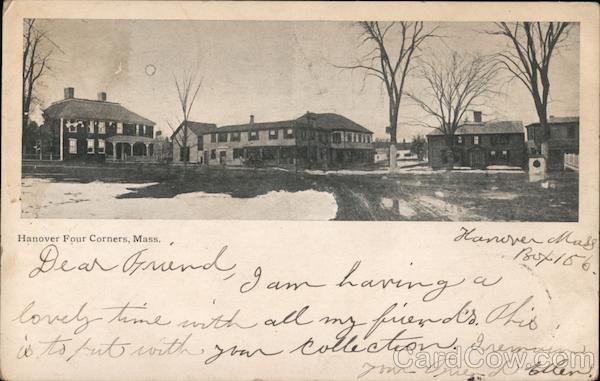 Hanover Four Corners, Mass.
Hanover Mass
Box 156.
Dear Friend,
I am having a
lovely time with all my friend's. This
is to put with your collection. I remain
your friend Ellen!
CardCow.com